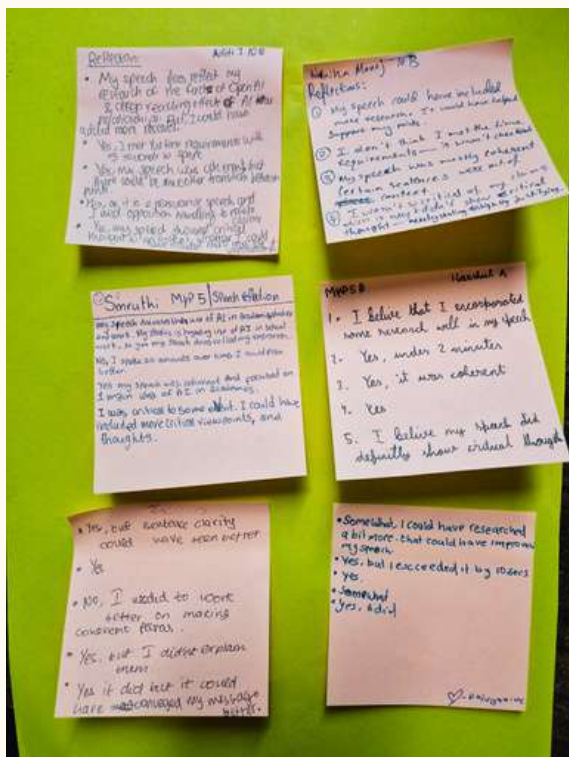 Reflection: Aditi I 10B
• My speech does reflect my
research of the facts of OpenAI
& deep reasoning effect of AI
But I could have
added more research.
• Yes, I met the time requirements with
seconds to spare
• Yes, my speech was coherent, but
there could be smoother transition between
points.
• Yes, as it is a persuasive speech, and
I used opposition handling to
• Yes, my speech showed critical
Manoj 10B
Reflections:
① My speech could have included
more research. It would have helped
support my points.
② I don't think I met the time
requirements — it wasn't checked
③ My speech was mostly coherent
Certain sentences were out of
context.
④ I wasn't critical of my claims
which is why I didn't show critical
thought — merely stating
Smruthi MYP 5 | Speech reflection
My speech use of AI in academics
work. My use of AI in school
work, so
No, I spoke 20 seconds over time. I could have
better.
Yes my speech was coherent and focused on
1 main idea of AI in academics.
I was critical to some extent. I could have
included more critical viewpoints, and
thoughts.
MYP5B Harshul A
1. I belive that I encorporated
some research well in my speech
2. Yes, under 2 minutes
3. Yes, it was coherent
4. Yes
5. I belive my speech did
definitly show critical thought
• Yes, but sentence clarity
could have been better
• Yes
• No, I needed to work
better on making
coherent paras.
• Yes, but I didn't explain
them
• Yes it did but it could
have conveyed my message
better.
• Somewhat, I could have researched
a bit more. that could have improved
my speech
• Yes, but I exceeded it by 10 secs
• Yes.
• Somewhat
• Yes, it did